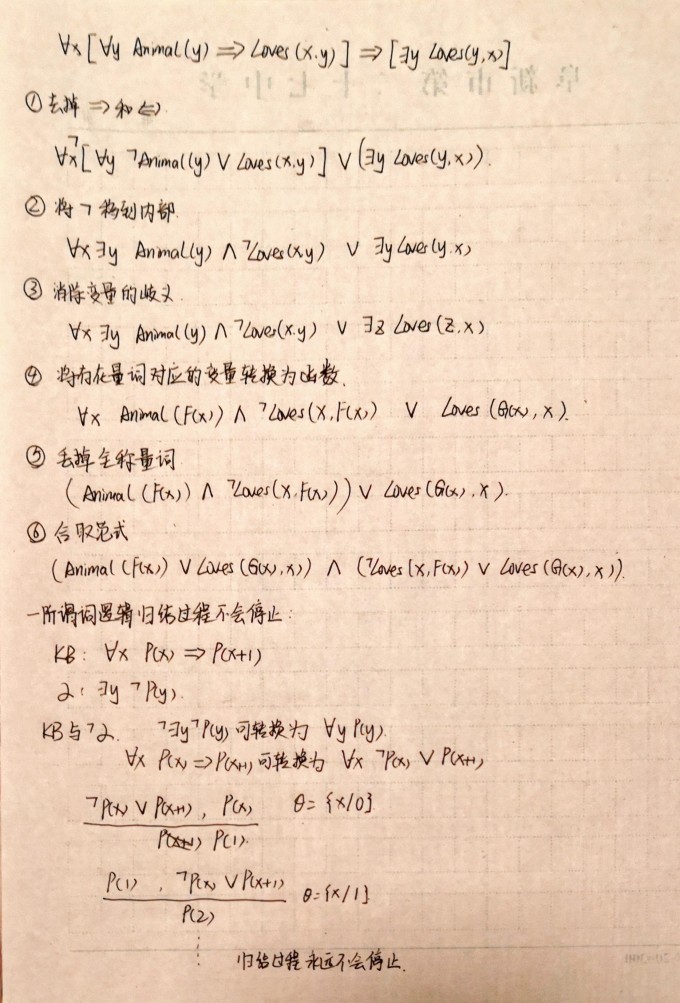 ∀x [∀y Animal(y) ⇒ Loves(x,y)] ⇒ [∃y Loves(y,x)]
阜新市第二十七中学
① 去掉 ⇒ 和 ⇔
∀x ¬[∀y ¬Animal(y) ∨ Loves(x,y)] ∨ (∃y Loves(y,x)).
② 将 ¬ 移到内部.
∀x ∃y Animal(y) ∧ ¬Loves(x,y) ∨ ∃y Loves(y,x)
③ 消除变量的歧义.
∀x ∃y Animal(y) ∧ ¬Loves(x,y) ∨ ∃z Loves(z,x)
④ 将存在量词对应的变量转换为函数.
∀x Animal(F(x)) ∧ ¬Loves(x,F(x)) ∨ Loves(G(x),x).
⑤ 丢掉全称量词
(Animal(F(x)) ∧ ¬Loves(x,F(x))) ∨ Loves(G(x),x).
⑥ 合取范式
(Animal(F(x)) ∨ Loves(G(x),x)) ∧ (¬Loves(x,F(x)) ∨ Loves(G(x),x)).
一阶谓词逻辑归结过程不会停止:
KB: ∀x P(x) ⇒ P(x+1)
α: ∃y ¬P(y).
KB与¬α. ¬∃y¬P(y) 可转换为 ∀y P(y).
∀x P(x) ⇒ P(x+1) 可转换为 ∀x ¬P(x) ∨ P(x+1)
¬P(x) ∨ P(x+1), P(x) θ={x/0}
P(1).
P(1), ¬P(x) ∨ P(x+1) θ={x/1}
P(2)
归结过程永远不会停止.